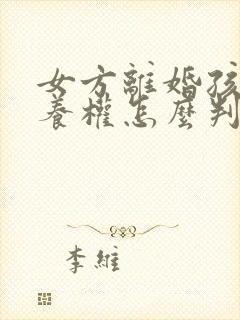 女方離婚孩
養權怎麼判
李維